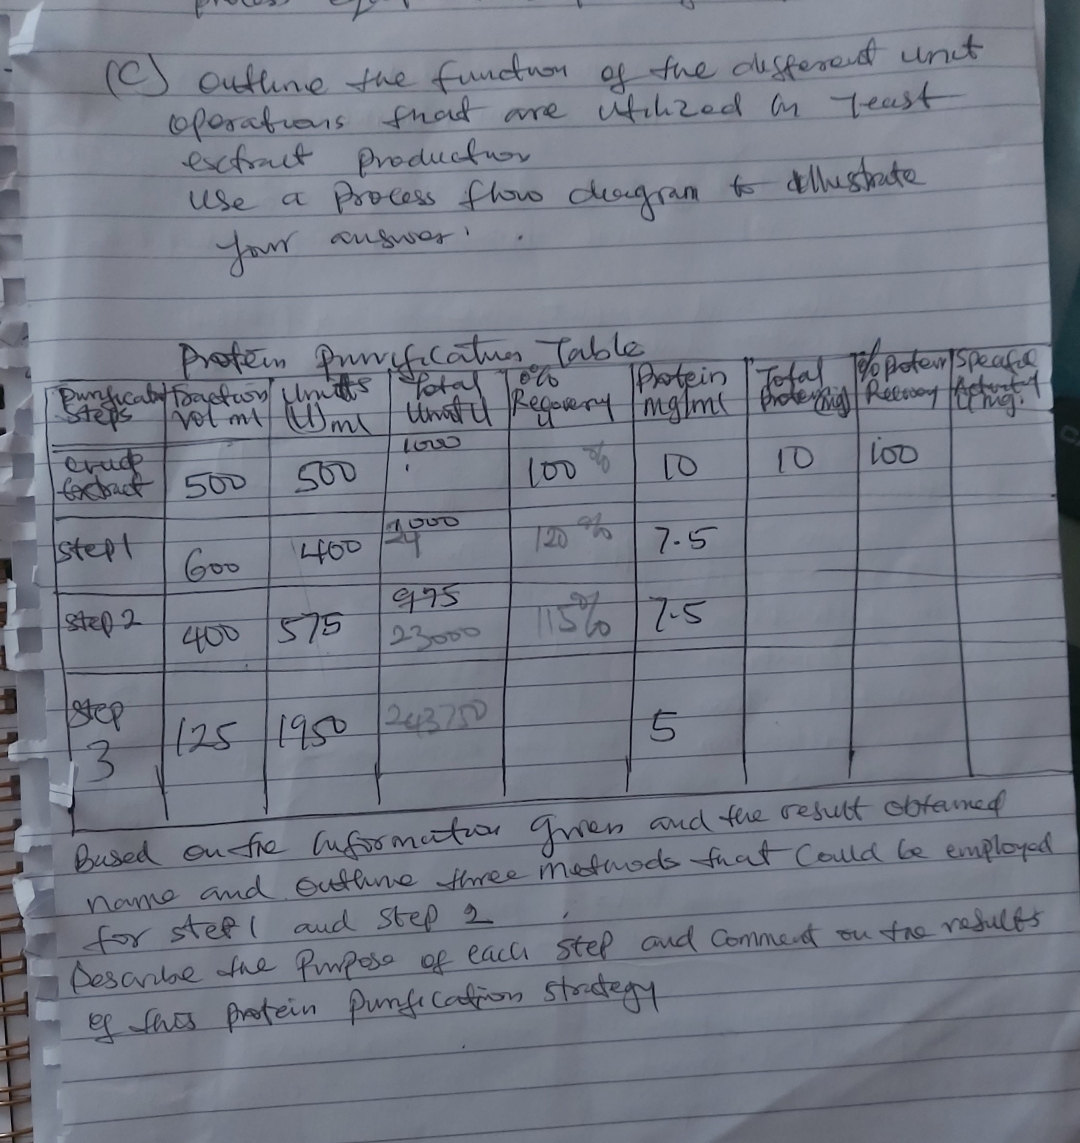 (C) Outline the function of the different unit
operations that are utilized in Yeast
extract production
Use a Process flow diagram to illustrate
your answer.
Protein Purification Table
Purification Steps Fraction Vol ml Units (U) ml Total Unit U % Recovery U Protein mg/ml Total Protein (mg) % Protein Recovery Specific Activity U/mg.
Crude Extract 500 500 1000 100% 10 10 100
Step 1 600 400 1000 120% 7.5
Step 2 400 575 975 23000 115% 7.5
Step 3 125 1950 243750 5
Based on the information given and the result obtained
name and outline three methods that could be employed
for step 1 and step 2
Describe the purpose of each step and comment on the results
of this protein purification strategy